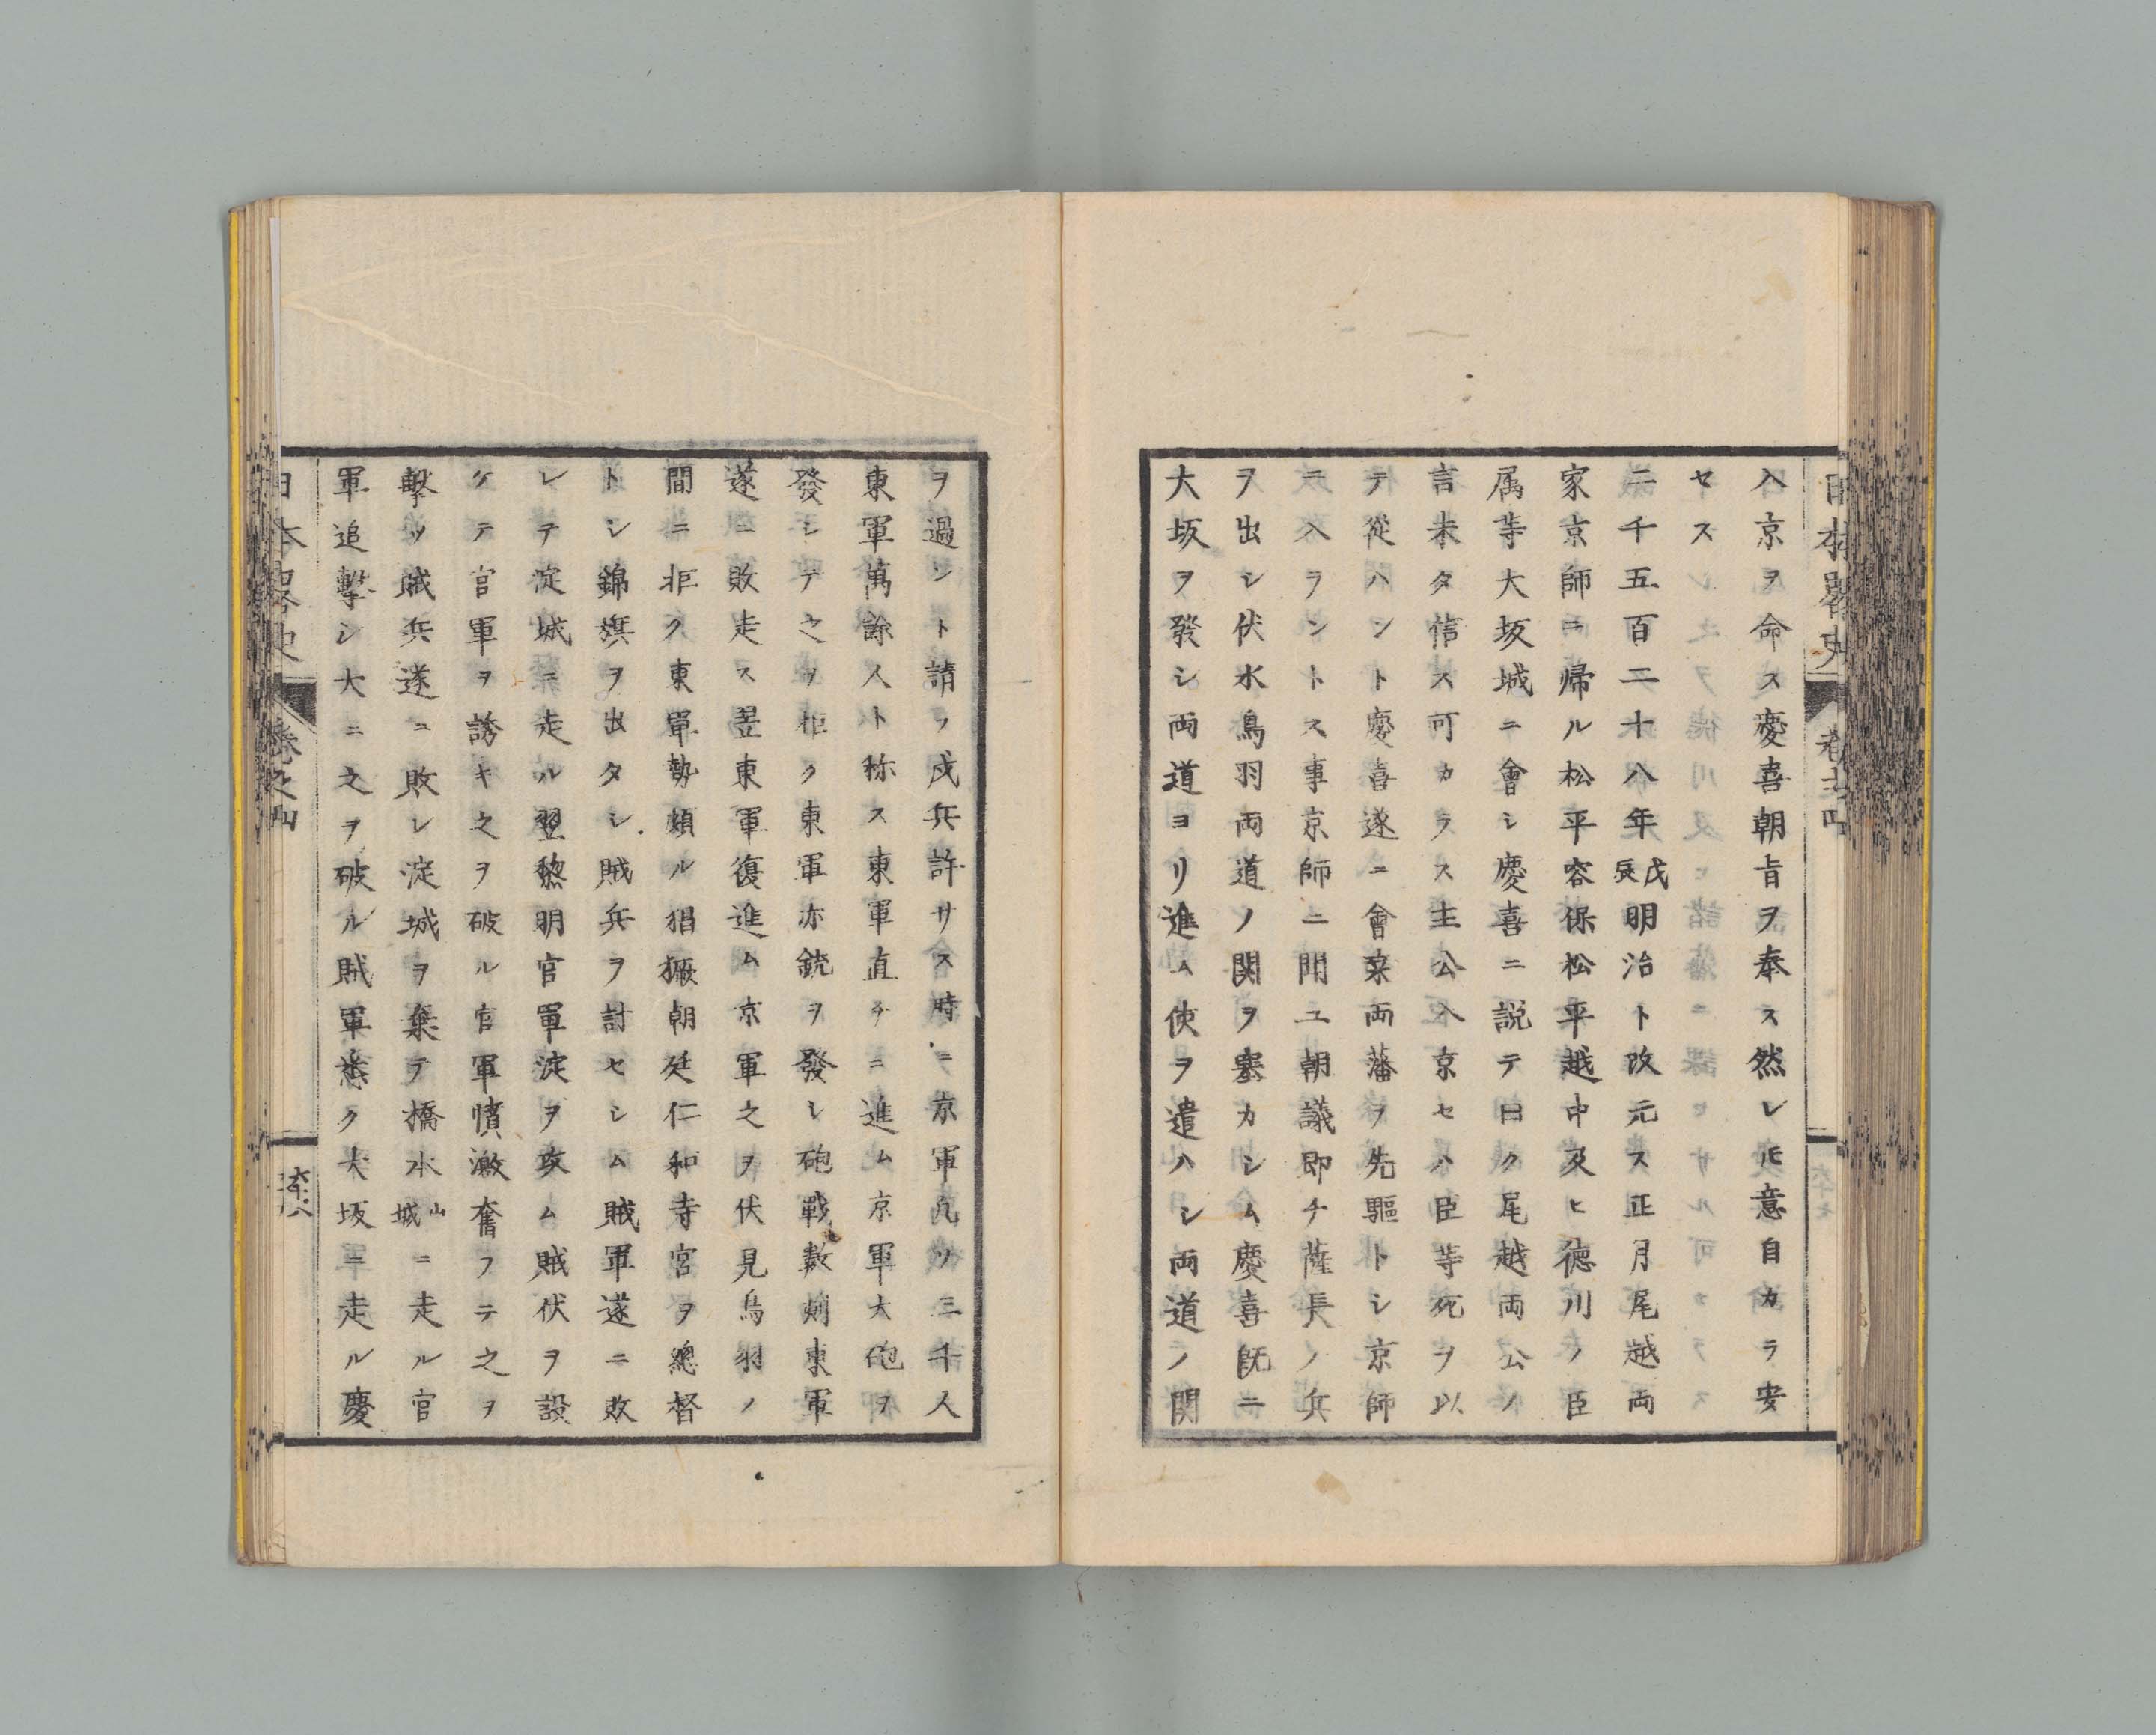 日本畧史 卷之四
入京ヲ命ス慶喜朝旨ヲ奉ス然レ𪜈意自カラ安
セス
二千五百二十八年戊辰明治ト改元ス正月尾越両
家京師ニ帰ル松平容保松平越中及ヒ徳川ノ臣
属等大坂城ニ會シ慶喜ニ説テ曰ク尾越両公ノ
言未タ信ス可カラス主公入京セハ臣等死ヲ以
テ從ハント慶喜遂ニ會桒両藩ヲ先驅トシ京師
ニ入ラントス事京師ニ聞ユ朝議即チ薩長ノ兵
ヲ出シ伏水鳥羽両道ノ関ヲ塞カシム慶喜既ニ
大坂ヲ發シ両道ヨリ進ム使ヲ遣ハシ両道ノ関
ヲ過ント請フ戍兵許サス時ニ京軍凡ソ三千人
東軍萬餘人ト称ス東軍直チニ進ム京軍大砲ヲ
發シテ之ヲ拒ク東軍亦銃ヲ發シ砲戰數刻東軍
遂ニ敗走ス翌東軍復進ム京軍之ヲ伏見鳥羽ノ
間ニ拒ク東軍勢頗ル猖獗朝廷仁和寺宮ヲ總督
トシ錦旗ヲ出タシ賊兵ヲ討セシム賊軍遂ニ敗
レテ淀城ニ走ル翌黎明官軍淀ヲ攻ム賊伏ヲ設
ケテ官軍ヲ誘キ之ヲ破ル官軍憤激奮フテ之ヲ
擊ツ賊兵遂ニ敗レ淀城ヲ棄テ橋本山城ニ走ル官
軍追擊シ大ニ之ヲ破ル賊軍悉ク大坂ニ走ル慶
日本畧史 卷之四